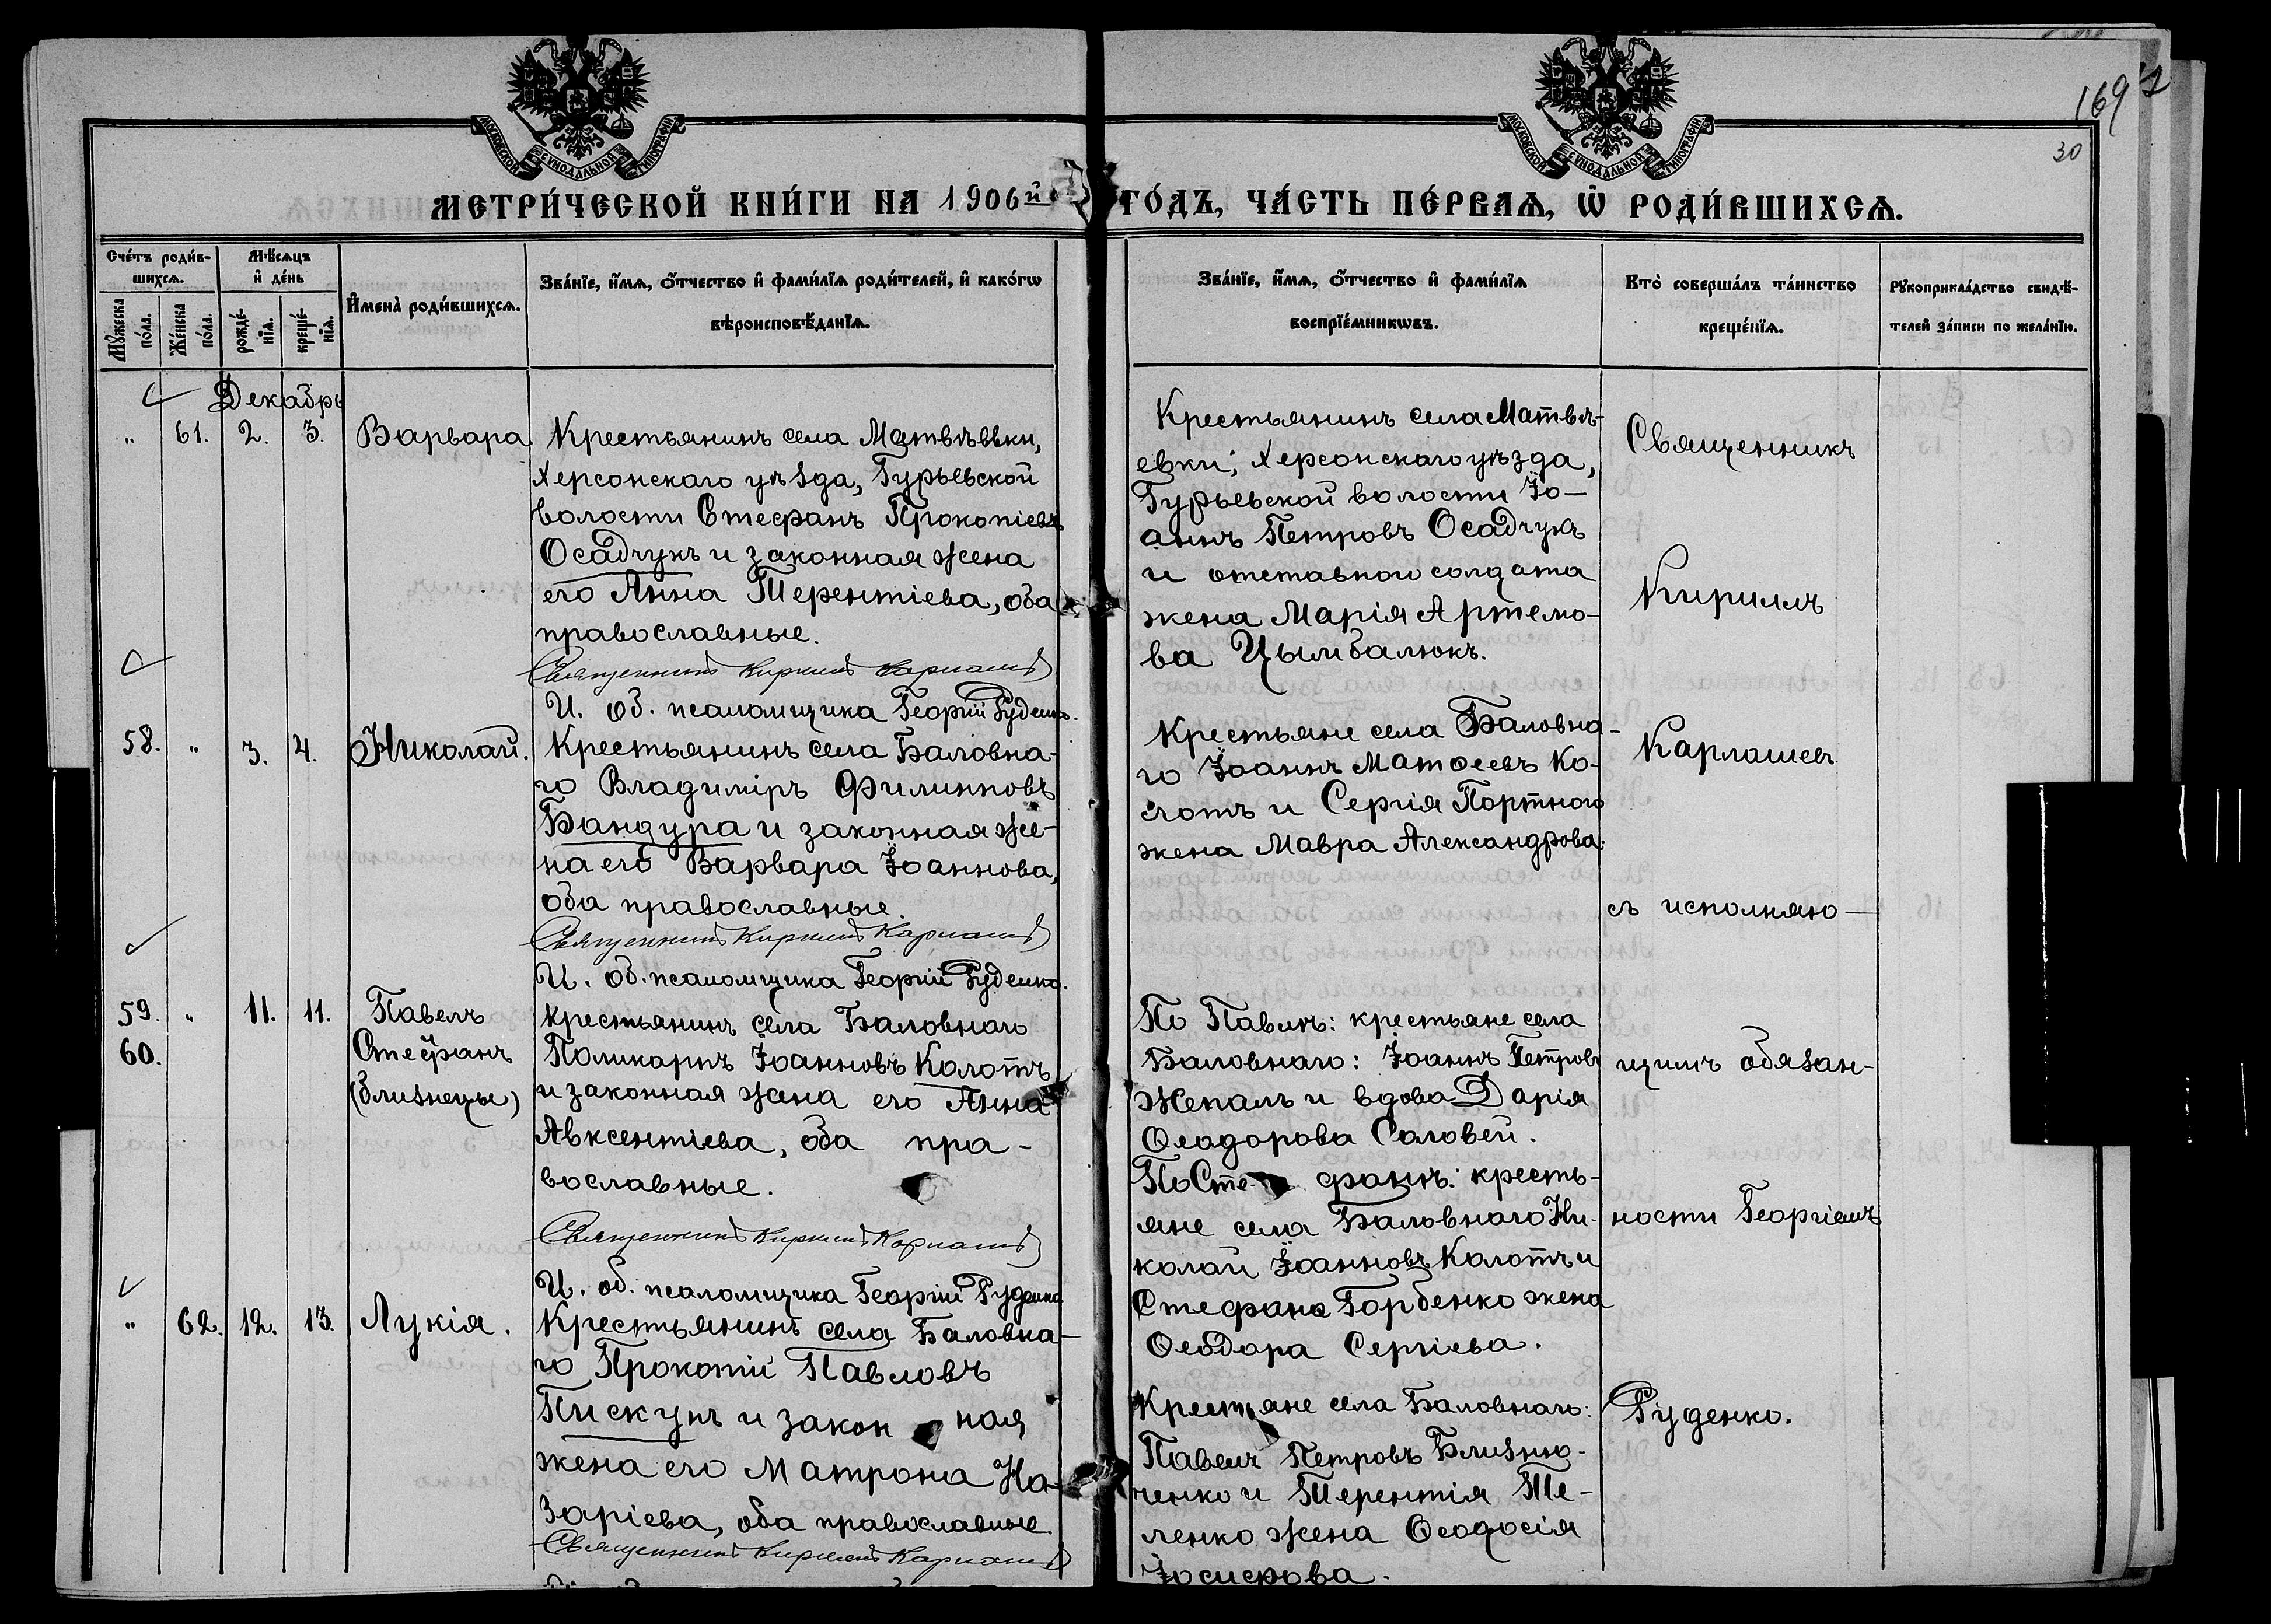 169
30
МОСКОВСКОЙ СѴНОДАЛЬНОЙ ТИПОГРАФІИ
МОСКОВСКОЙ СѴНОДАЛЬНОЙ ТИПОГРАФІИ
МЕТРИ́ЧЕСКОЙ КНИ́ГИ НА 1906й ГО́ДЪ, ЧА́СТЬ ПЕ́РВАѦ, Ѡ҆ РОДИ́ВШИХСѦ.
Сче́тъ роди́в-
шихсѧ.
Мꙋ́жеска по́ла.
Же́нска по́ла.
Мѣ́сѧцъ
и҆ де́нь
рожде́-
нїѧ.
креще́-
нїѧ.
И҆мена̀ роди́вшихсѧ.
Зва́нїе, и҆́мѧ, ѻ҆́тчество и҆ фами́лїѧ роди́телей, и҆ како́гѡ
вѣроисповѣ́данїѧ.
Зва́нїе, и҆́мѧ, ѻ҆́тчество и҆ фами́лїѧ
воспрїе́мникѡвъ.
Кто̀ соверша́лъ та́инство
креще́нїѧ.
Рꙋкоприкла́дство свидѣ́-
телей за́писи по жела́нїю.
Декабрь
" 61. 2. 3. Варвара
Крестьянинъ села Матвѣевки,
Херсонскаго уѣзда, Гурьевской
волости Стефанъ Прокопіевъ
Осадчукъ и законная жена
его Анна Терентіева, оба
православные.
Священникъ Кириллъ Карпашевъ
И. об. псаломщика Георгій Руденко.
Крестьянинъ села Матвѣ-
евки, Херсонскаго уѣзда,
Гурьевской волости Іо-
аннъ Петровъ Осадчукъ
и отставнои солдата
жена Марія Артемо-
ва Цымбалюкъ.
58. " 3. 4. Николай.
Крестьянинъ села Баловна-
го Владиміръ Филипповъ
Бандура и законная же-
на его Варвара Іоаннова,
оба православные.
Священникъ Кириллъ Карпашевъ
И. об. псаломщика Георгій Руденко.
Крестьяне села Баловна-
го Іоаннъ Матѳеевъ Ко-
лотъ и Сергія Портного
жена Мавра Александрова.
59. " 11. 11. Павелъ
60. Стефанъ
(близнецы)
Крестьянинъ села Баловнаго
Поликарпъ Іоанновъ Колотъ
и законная жена его Анна
Авксентіева, оба пра-
вославные.
Священникъ Кириллъ Карпашевъ
И. об. псаломщика Георгій Руденко
По Павлѣ: крестьяне села
Баловнаго: Іоаннъ Петровъ
Жекалъ и вдова Дарія
Ѳеодорова Соловей.
По Сте фанѣ: кресть-
яне села Баловнаго Ни-
колай Іоанновъ Колотъ и
Стефана Горбенко жена
Ѳеодора Сергіева.
" 62. 12. 13. Лукія.
Крестьянинъ села Баловна-
го Прокопій Павловъ
Пискунъ и закон ная
жена его Матрона На-
заріева, оба православные
Священникъ Кириллъ Карпашевъ
Крестьяне села Баловнаго:
Павелъ Петровъ Близню-
ченко и Терентія Те-
ленко жена Ѳеодосія
Іосифова.
Священникъ
Кириллъ
Карпашевъ
съ исполняю-
щимъ обязан-
ности Георгіемъ
Руденко.